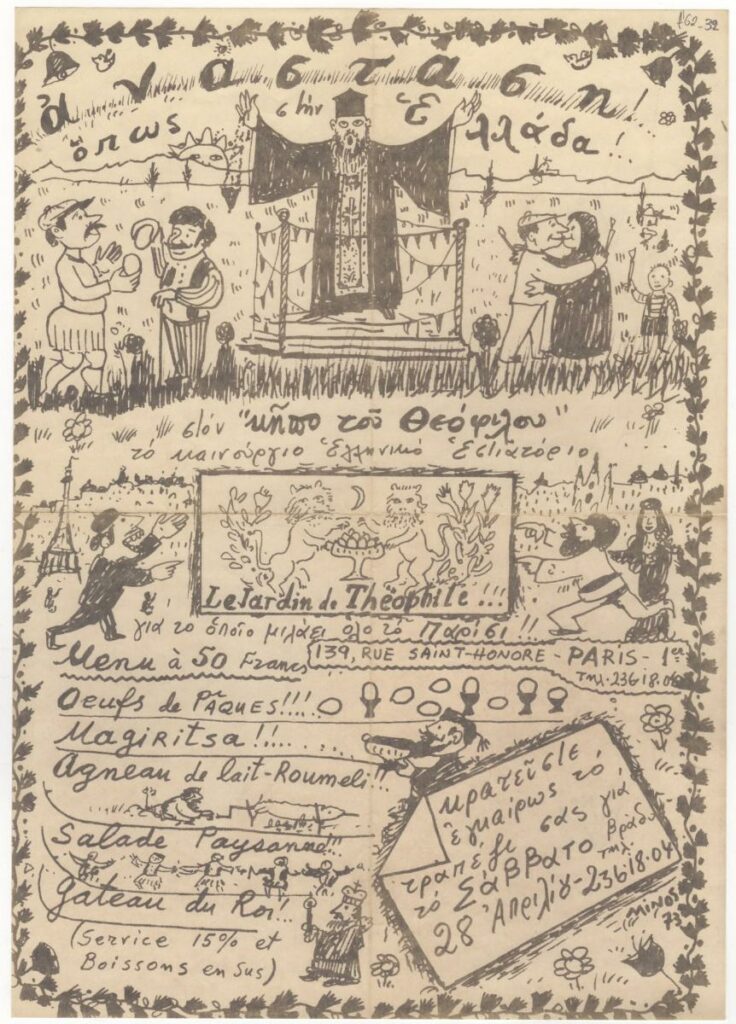 Ἀνάσταση!
ὅπως στὴν Ἑλλάδα!..
στὸν "κῆπο τοῦ Θεόφιλου"
τὸ καινούργιο Ἑλληνικὸ Ἑστιατόριο
Le Jardin de Théophile!...
γιὰ τὸ ὁποῖο μιλάει ὅλο τὸ Παρίσι!!
Menu à 50 Francs
139, RUE SAINT-HONORE - PARIS - 1er
Τηλ. 236 18.04
Oeufs de PÂQUES!!!!
Magiritsa!!......
Agneau de lait-Roumeli!!
Salade Paysanne!..
Gateau du Roi!..
(Service 15% et
Boissons en sus)
κρατεῖστε
ἐγκαίρως τὸ
τραπέζι σας γιά
τὸ Σάββατο βράδυ
28 Ἀπριλίου-τηλ. 23618.04
ΜΙΝΟΣ
73